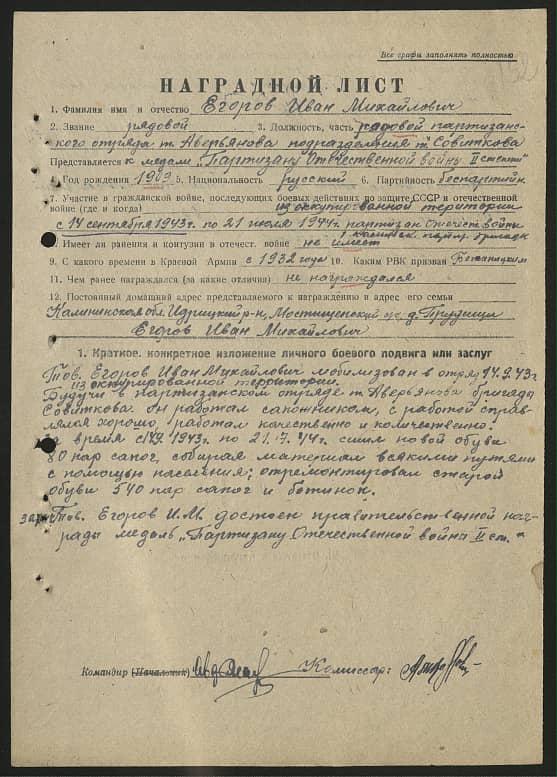 Все графы заполнять полностью
НАГРАДНОЙ ЛИСТ
1. Фамилия имя и отчество Егоров Иван Михайлович
2. Звание рядовой 3. Должность, часть рядовой партизанс-
кого отряда т. Аверьянова подразделения т. Совиткова
Представляется к медали „Партизану Отечественной войны" II степени
4. Год рождения 1909 5. Национальность русский 6. Партийность беспартийн.
7. Участие в гражданской войне, последующих боевых действиях по защите СССР и отечественной
войне (где и когда) из оккупированной територии
с 14 сентября 1943 г. по 21 июля 1944 г. партизан Отечеств войны
партиз. бригады
8. Имеет ли ранения и контузии в отечест. войне не имеет
9. С какого времени в Красной Армии с 1932 года 10. Каким РВК призван Бежаницким
11. Чем ранее награждался (за какие отличия) не награждался
12. Постоянный домашний адрес представляемого к награждению и адрес его семьи
Калининская обл. Идрицкий р-н, Мостищенский с/с д.
Егоров Иван Михайлович
1. Краткое, конкретное изложение личного боевого подвига или заслуг
Тов. Егоров Иван Михайлович мобилизован в отряд 14.9.43г
из оккупированной территории.
Будучи в партизанском отряде т. Аверьянова бригады
Совиткова. он работал сапожником, с работой справ-
лялся хорошо, работал качественно и количественно.
за время с 14.9. 1943 г. по 21.7.44 г. сшил новой обуви
80 пар сапог, собирая материал всякими путями
с помощью населения; отремонтировал старой
обуви 540 пар сапог и ботинок.
Тов. Егоров И.М. достоен правительственной наг-
рады медаль „Партизану Отечественной война II ст."
Командир (Начальник) Комиссар: